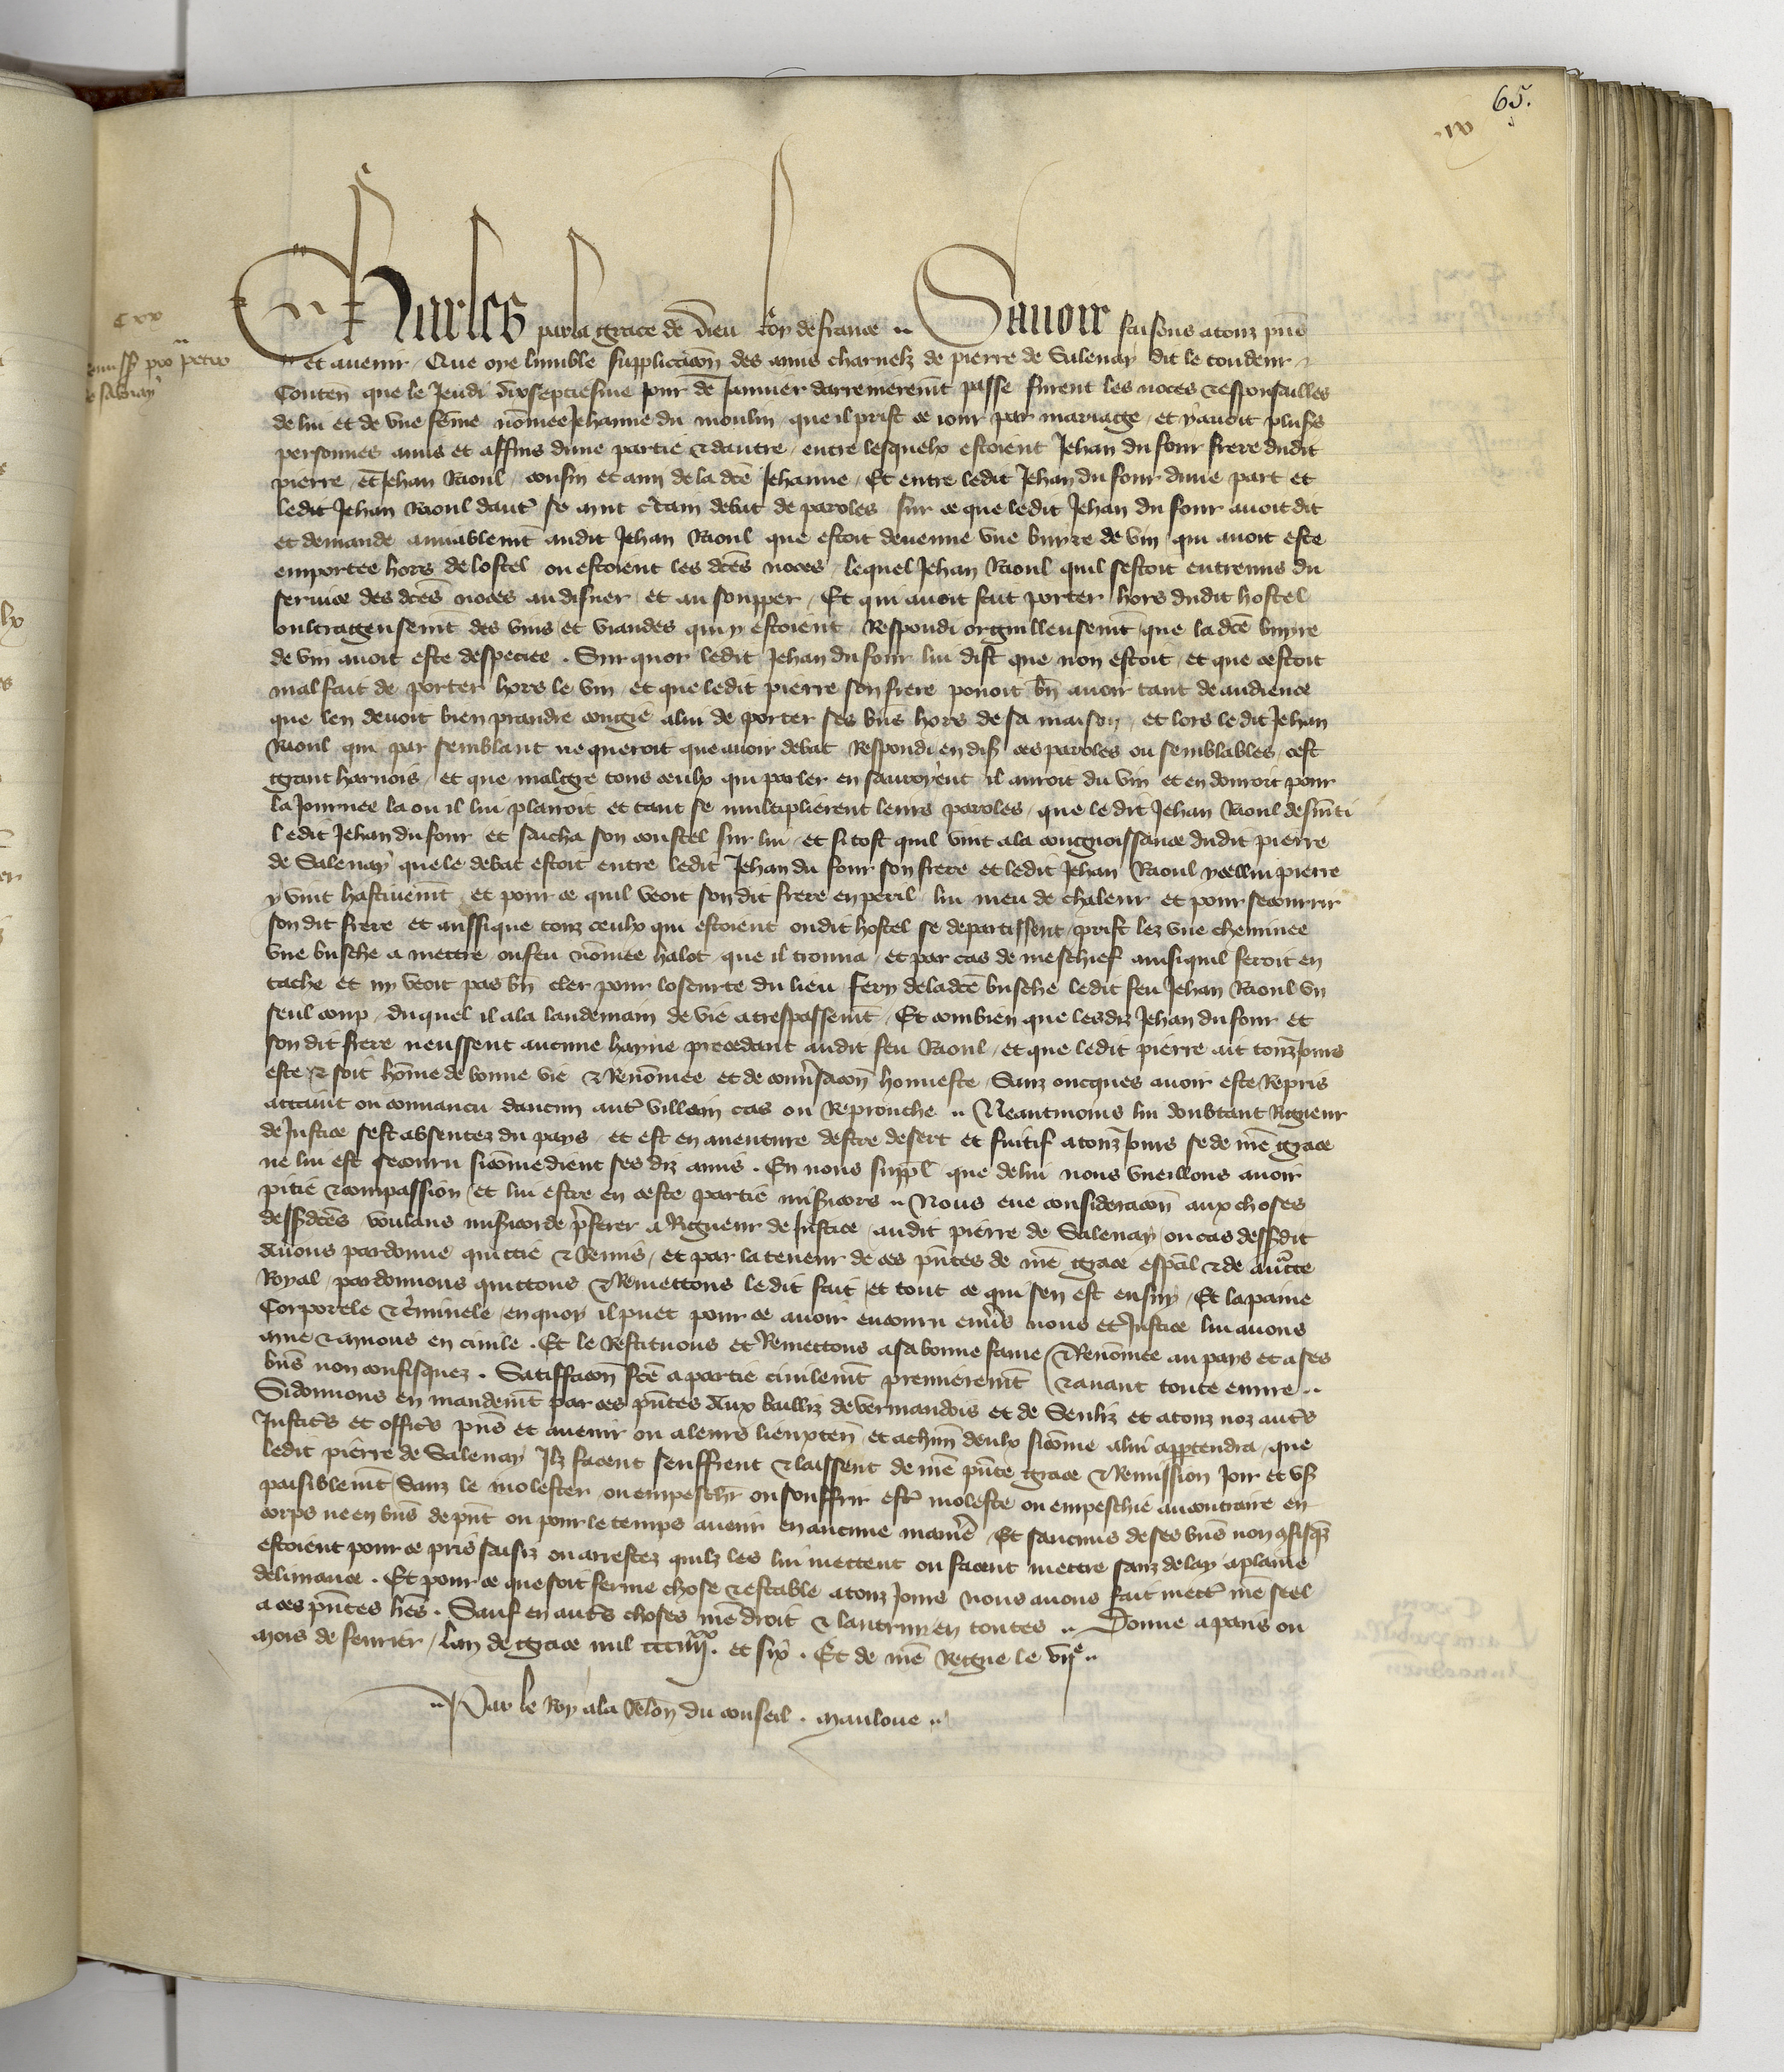 65.
Cxv
Charles par la grace de dieu Roy de france .. Savoir faisons a touz pñs
Remiss̃ pro petro
de salenay
et avenir . Que oye lumble supplicacoñ des amis charnelz de pierre de Salenay dit le tondeur .
Conteñ que le Jeudi dixseptiesme jour de Janvier darrenieremt passe furent les noces et espousailles
de lui et de une feme nõmee Jehanne du moulin que il prist ce jour par mariage et y avoit plus̃s
personnes amis et affins dune partie et dautre entre lesquelx estoient Jehan du four frere dudit
pierre et Jehan Raoul cousin et amy de la dcẽ Jehanne , Et entre ledit Jehan du four dune part et
ledit Jehan Raoul daut̃ se mut c̃tain debat de paroles sur ce que ledit Jehan du four avoit dit
et demande amiablemt audit Jehan Raoul que estoit devenue une buyre de vin qui avoit este
emportee hors de lostel ou estoient les dcẽs noces lequel Jehan Raoul quil sestoit entremis du
service des dcẽs noces au disner et au soupper , Et qui avoit fait porter hors dudit hostel
oultrageusemt des vins et viandes qui y estoient Respondi orguilleusemt que la dcẽ buyre
de vin avoit este despeciee . Sur quoy ledit Jehan du four lui dist que non estoit et que cestoit
mal fait de porter hors le vin et que ledit pierre son frere povoit bñ avoir tant de audience
que len devoit bien prandre congie a lui de porter ses bñs hors de sa maison , et lors le dit Jehan
Raoul qui par semblant ne queroit que avoir debat Respondi en dis̃ ces paroles ou semblables , cest
grant harnois , et que maltgre tous ceulx qui parler en sauroyent il auroit du vin et en donroit pour
la Journee la ou il lui plairoit et tant se multiplierent leurs paroles que le dit Jehan Raoul desm̃ti
ledit Jehan du four et sacha son coustel sur lui et si tost quil vint a la congnoissance dudit pierre
de Salenay que le debat estoit entre ledit Jehan du four son frere et ledit Jehan Raoul ycellui pierre
y vint hastivemt et pour ce quil veoit son dit frere en peril lui meu de chaleur et pour secourrir
son dit frere et aussi que touz ceulx qui estoient oudit hostel se departissent prist lez une cheminee
une busche a mettre ou feu nõmee halot que il trouva et par cas de meschief ainsi quil feroit en
tache et ny veoit pas bñ cler pour loscurte du lieu fery de la dcẽ busche ledit feu Jehan Raoul un
seul coup , duquel il ala landemain de vie a trespassemt , Et combien que lesdiz Jehan du four et
son dit frere neussent aucune hayne precedant audit feu Raoul , et que ledit pierre ait touz jours
este et soit hõme de bonne vie et Renõmee et de conv̉sacoñ honneste Sanz oncques avoir este Repris
attaint ou convaincu daucun aut̃ villain cas ou Reprouche .. Neantmoins lui doubtant Rigueur
de Justice sest absentez du pays et est en aventure destre desert et fuitif a touz jours se de ñre grace
ne lui est secouru sicõme dient ses diz amis . En nous suppl̃ que de lui nous vueillons avoir
pitie et compassion et lui estre en ceste partie mis̃icors .. Nous eue consideracoñ aux choses
dessusdcẽs voulans mis̃icorde p̃ferer a Rigueur de Justice audit pierre de Salenay ou cas dessusdit
Avons pardonne quittie et Remis , et par la teneur de ces p̃ntes de ñre grace esp̃al et de auct̃e
Royal pardonnons quittons et Remettons ledit fait et tout ce qui sen est ensuy , Et la paine
Corporele et c̃minele en quoy il puet pour ce avoir encouru env̉s nous et Justice lui avons
mue et muons en civile . Et le Restituons et Remettons a sa bonne fame et Renõmee au pays et a ses
bñs non confisquez . Satisffacoñ fcẽ a partie civilemt premieremt et avant toute euvre ..
Si donnons en mandemt par ces p̃ntes Aux bailliz de vermandois et de Senliz et a touz noz aut̃s
Justiciẽs et officiẽs p̃ns et avenir ou a leurs lieuxteñ et a chũn deulx sicõme a lui appartendra que
ledit pierre de Salenay Ilz facent seuffrent et laissent de ñre p̃nte grace et Remission joir et us̃
paisiblemt Sanz le molester ou empeschr̃ ou souffrir est̃ moleste ou empeschie au contraire en
corps ne en bñs de p̃nt ou pour le temps avenir en aucune mañe Et saucuns de ses bñs non ꝯfisq̃z
estoient pour ce pris saisiz ou arrestez quilz les lui mettent ou facent mettre sanz delay a plaine
delivrance . Et pour ce que soit ferme chose et estable a touz jours nous avons fait mett̃ ñre seel
a ces p̃ntes l̃res . Sauf en aut̃s choses ñre droit et lautruy en toutes .. Donne a paris ou
mois de fevrier , lan de grace mil ccciiijxx . et six . Et de ñre Regne le vije ..
.. Par le Roy a la Rel̃on du conseil . Mauloue ..